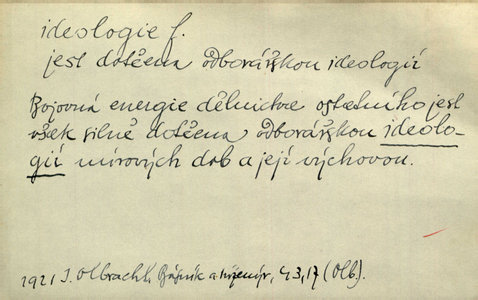 ideologie f.
jest dotčena odborářskou ideologií
Bojovná energie dělnictva ostatního jest
však silně dotčena odborářskou ideolo-
gií mírových dob a její výchovou.
1921 I. Olbracht, a 43,17 (Olb).